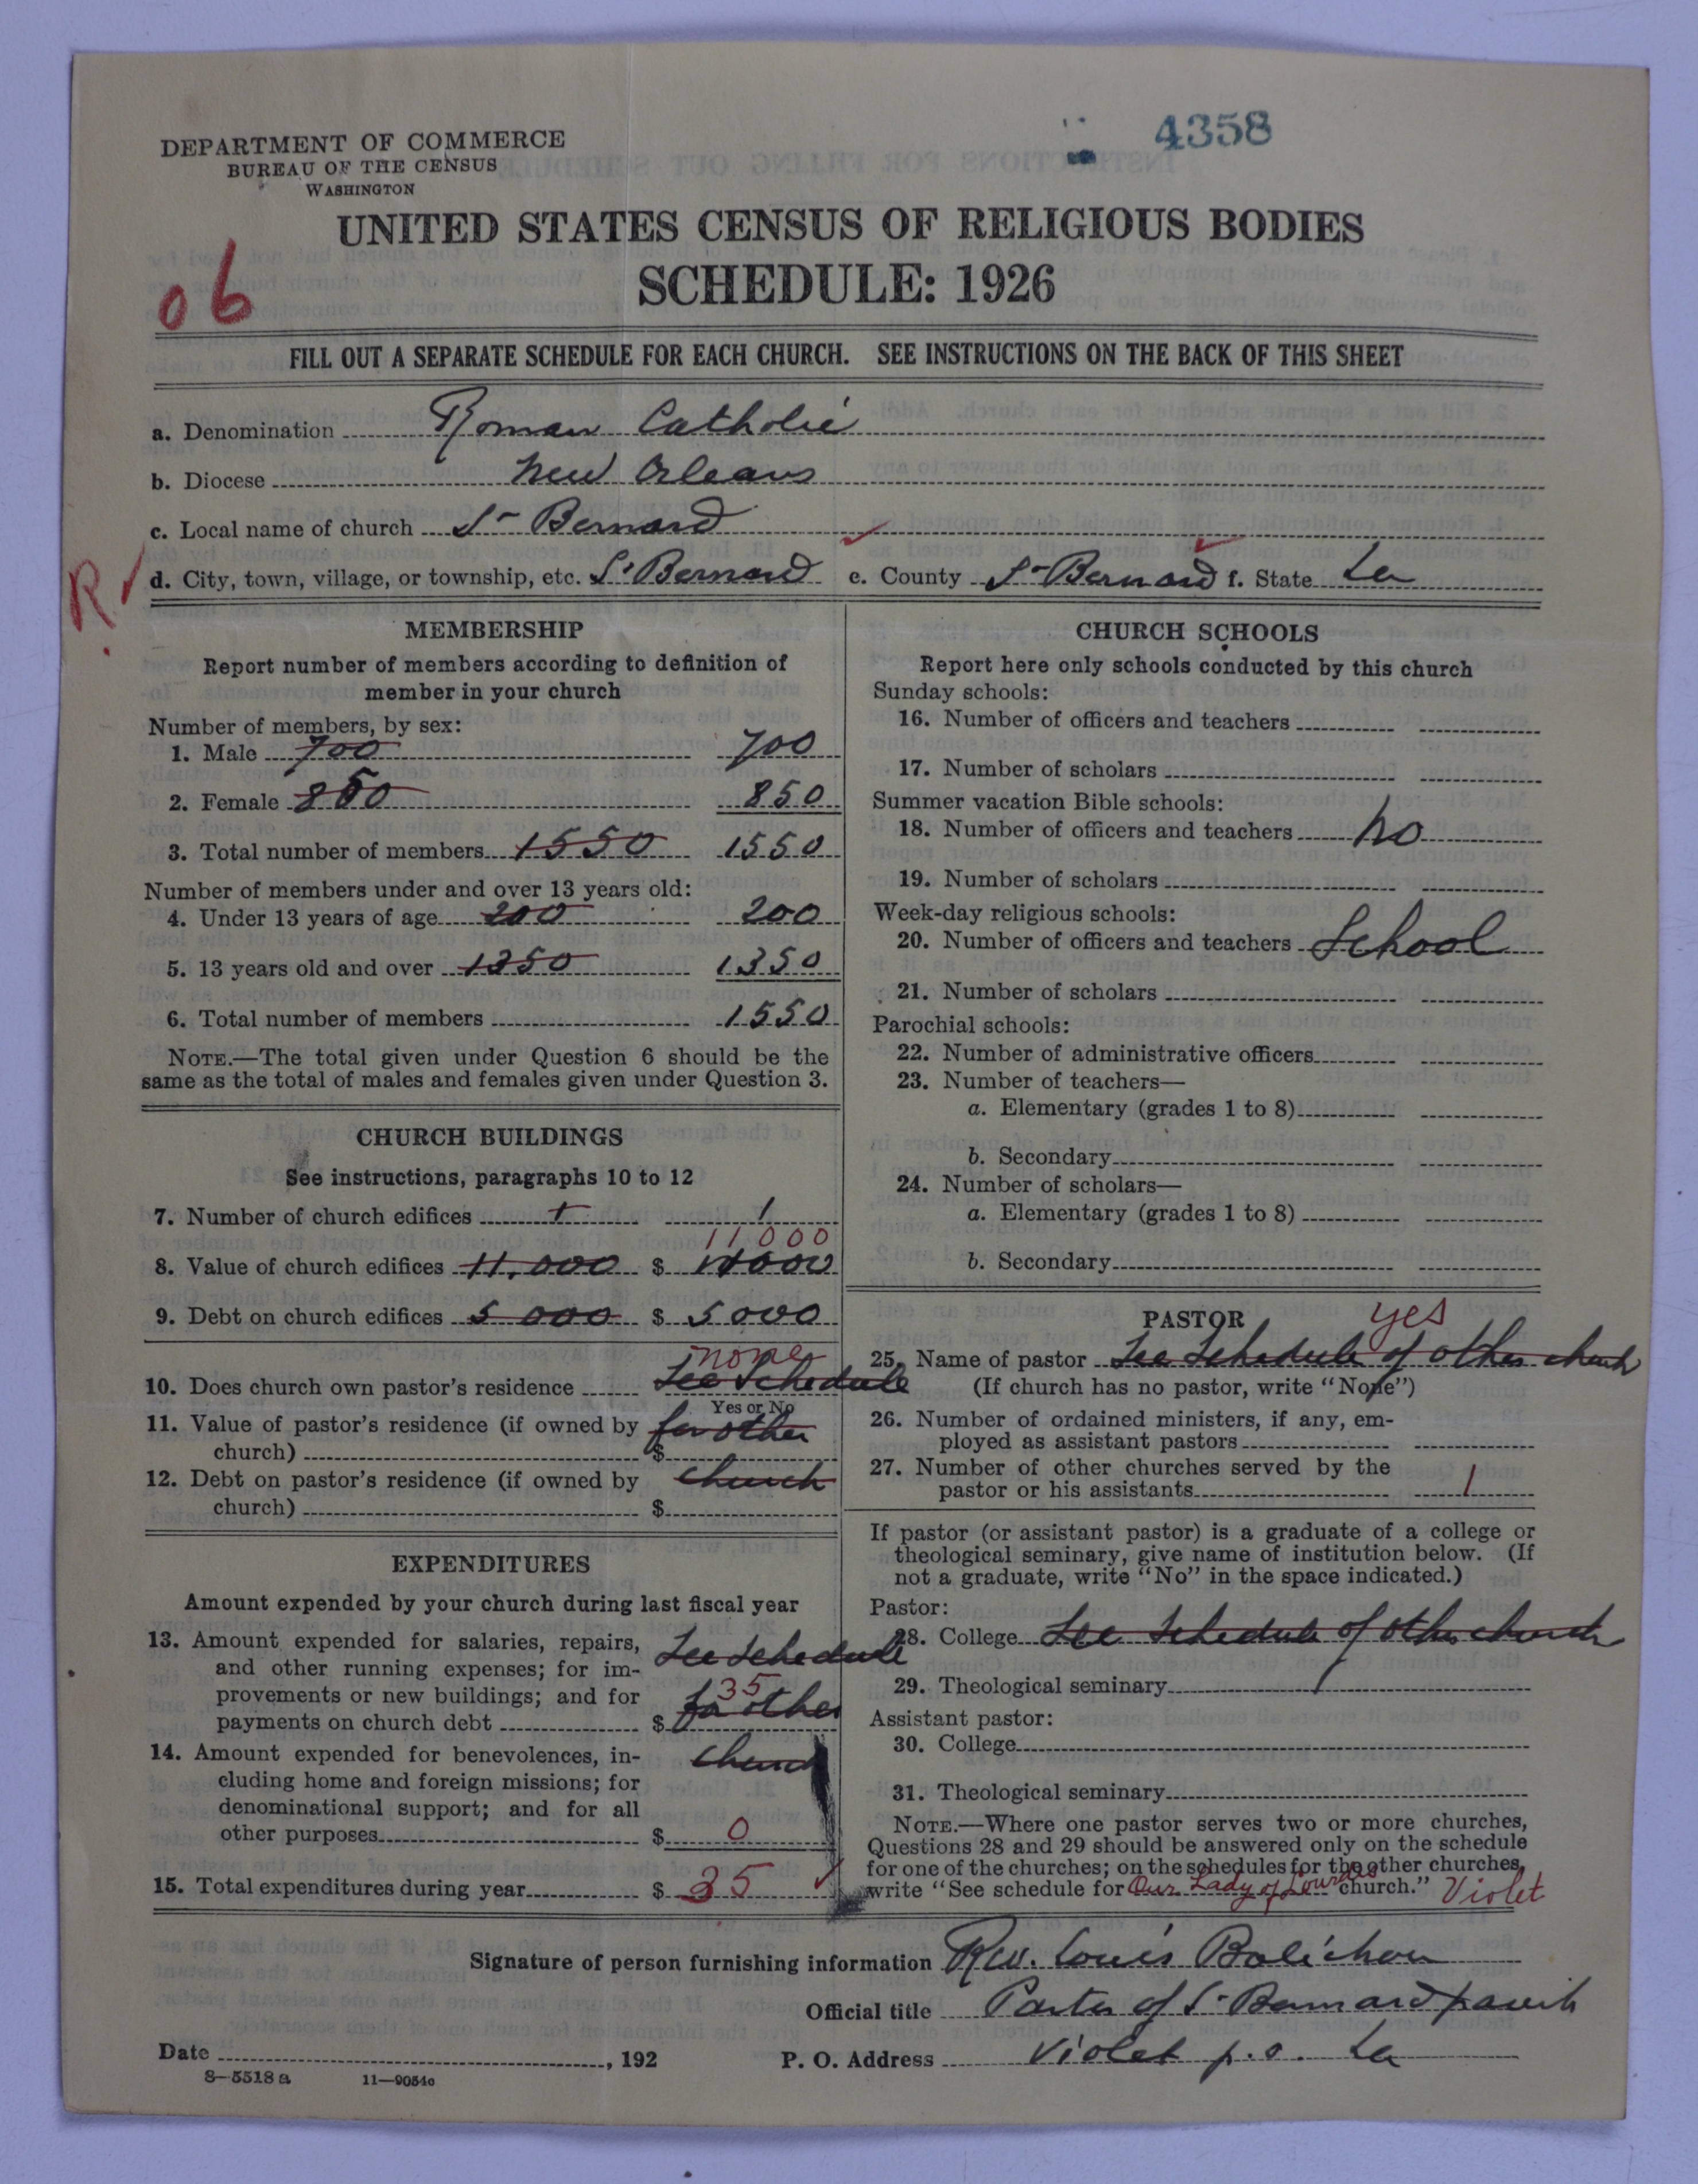 4358
DEPARTMENT OF COMMERCE
BUREAU OF THE CENSUS
WASHINGTON
UNITED STATES CENSUS OF RELIGIOUS BODIES
SCHEDULE: 1926
06
FILL OUT A SEPARATE SCHEDULE FOR EACH CHURCH. SEE INSTRUCTIONS ON THE BACK OF THIS SHEET
a. Denomination Roman Catholic
b. Diocese New Orleans
c. Local name of church St Bernard
R. d. City, town, village, or township, etc. St Bernard e. County St Bernard f. State La
MEMBERSHIP
Report number of members according to definition of
member in your church
Number of members, by sex:
1. Male 700 700
2. Female 850 850
3. Total number of members 1550 1550
Number of members under and over 13 years old:
4. Under 13 years of age 200 200
5. 13 years old and over 1350 1350
6. Total number of members 1550
NOTE.—The total given under Question 6 should be the
same as the total of males and females given under Question 3.
CHURCH BUILDINGS
See instructions, paragraphs 10 to 12
7. Number of church edifices 1 1
11000
8. Value of church edifices 11,000 $ 11000
9. Debt on church edifices 5 000 $ 5000
none
10. Does church own pastor's residence See Schedule
Yes or No
11. Value of pastor's residence (if owned by for other
church) $
12. Debt on pastor's residence (if owned by church
church) $
EXPENDITURES
Amount expended by your church during last fiscal year
13. Amount expended for salaries, repairs, See Schedule
and other running expenses; for im-
provements or new buildings; and for 35
payments on church debt $ for other
14. Amount expended for benevolences, in- church
cluding home and foreign missions; for
denominational support; and for all
other purposes $ 0
15. Total expenditures during year $ 35
CHURCH SCHOOLS
Report here only schools conducted by this church
Sunday schools:
16. Number of officers and teachers
17. Number of scholars
Summer vacation Bible schools:
18. Number of officers and teachers no
19. Number of scholars
Week-day religious schools:
20. Number of officers and teachers School
21. Number of scholars
Parochial schools:
22. Number of administrative officers
23. Number of teachers—
a. Elementary (grades 1 to 8)
b. Secondary
24. Number of scholars—
a. Elementary (grades 1 to 8)
b. Secondary
PASTOR yes
25. Name of pastor See Schedule of other church
(If church has no pastor, write "None")
26. Number of ordained ministers, if any, em-
ployed as assistant pastors
27. Number of other churches served by the
pastor or his assistants 1
If pastor (or assistant pastor) is a graduate of a college or
theological seminary, give name of institution below. (If
not a graduate, write "No" in the space indicated.)
Pastor:
28. College See Schedule of other church
29. Theological seminary
Assistant pastor:
30. College
31. Theological seminary
NOTE.—Where one pastor serves two or more churches,
Questions 28 and 29 should be answered only on the schedule
for one of the churches; on the schedules for the other churches,
write "See schedule for Our Lady of Lourdes church." Violet
Signature of person furnishing information Rev. Louis Bolichon
Official title Pastor of St Bernard parish
Date , 192 P. O. Address Violet p.o. La
8—5518 a 11—9054c